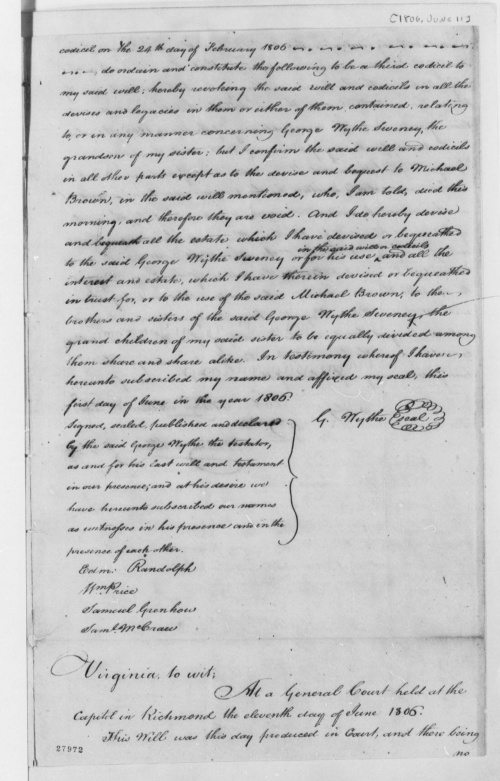 [1806, June 11]
codicil on the 24th day of February 1806
do ordain and constitute the following to be a third codicil to
my said will; hereby revoking the said will and codicils in all the
devises and legacies in them or either of them contained, relating
to, or in any manner concerning George Wythe Sweney, the
grandson of my sister; but I confirm the said will and codicils
in all other parts except as to the devise and bequest to Michael
Brown, in the said will mentioned, who, I am told, died this
morning, and therefore they are void. And I do hereby devise
and bequeath all the estate which I have devised or bequeathed
in the said will or codicils
to the said George Wythe Sweney or for his use, and all the
interest and estate, which I have therein devised or bequeathed
in trust for, or to the use of the said Michael Brown, to the
brothers and sisters of the said George Wythe Sweney, the
grand children of my said sister to be equally divided among
them share and share alike. In testimony whereof I have
hereunto subscribed my name and affixed my seal, this
first day of June in the year 1806.
G. Wythe Seal
Signed, sealed, published and declared
by the said George Wythe the testator,
as and for his last will and testament
in our presence; and at his desire we
have hereunto subscribed our names
as witnesses in his presence and in the
presence of each other.
Edm: Randolph
Wm Price
Samuel Greenhow
Saml. McCraw
Virginia, to wit;
At a General Court held at the
Capitol in Richmond the eleventh day of June 1806.
This Will was this day produced in Court, and there being
no
27972